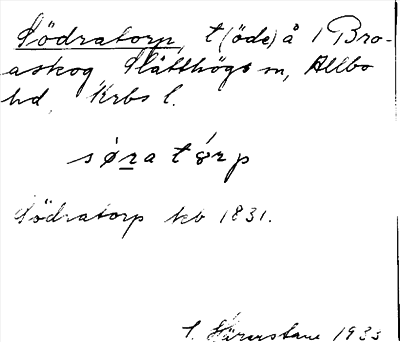 Södratorp, t (öde) å 1 Bro-
askog Slätthögs sn, Allbo
hd, Krbs l.
søra tórp
Södratorp kb 1831.
1933